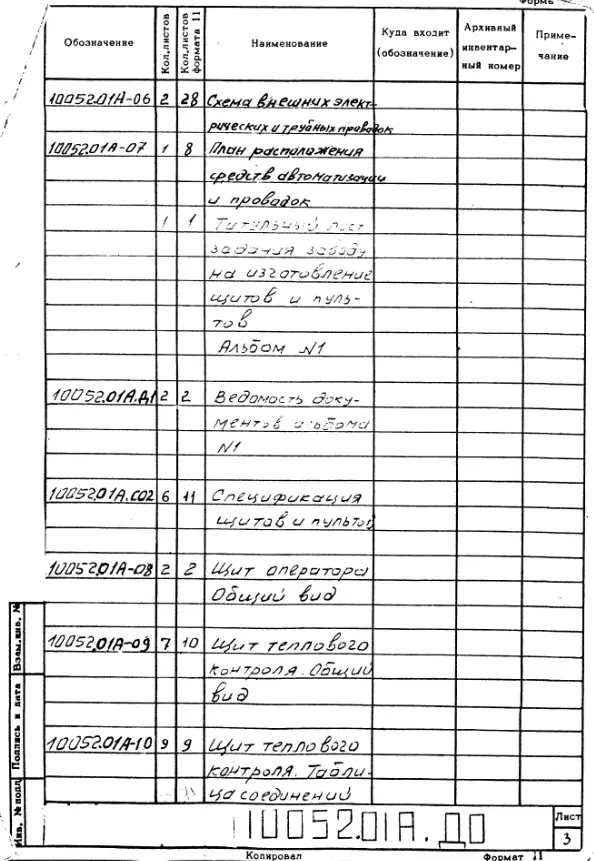 Форма
Обозначение Кол.листов Кол.листов формата 11 Наименование Куда входит (обозначение) Архивный инвентарный номер Примечание
10052.01А-06 2 28 Схема внешних элект-
рических и трубных проводок
10052.01А-07 1 8 План расположения
средств автоматизации
и проводок
1 1 Титульный лист
задания заводу
на изготовление
щитов и пуль-
тов
Альбом N1
10052.01А.Д1 2 2 Ведомость доку-
ментов альбома
N1
10052.01А.СО2 6 11 Спецификация
щитов и пультов
10052.01А-08 2 2 Щит оператора
Общий вид
10052.01А-09 7 10 Щит теплового
контроля. Общий
вид
10052.01А-10 9 9 Щит теплового
контроля. Табли-
ца соединений
Взам.инв. №
Подпись и дата
Инв. № подл
10052.01А.ДО
Лист
3
Копировал Формат 11